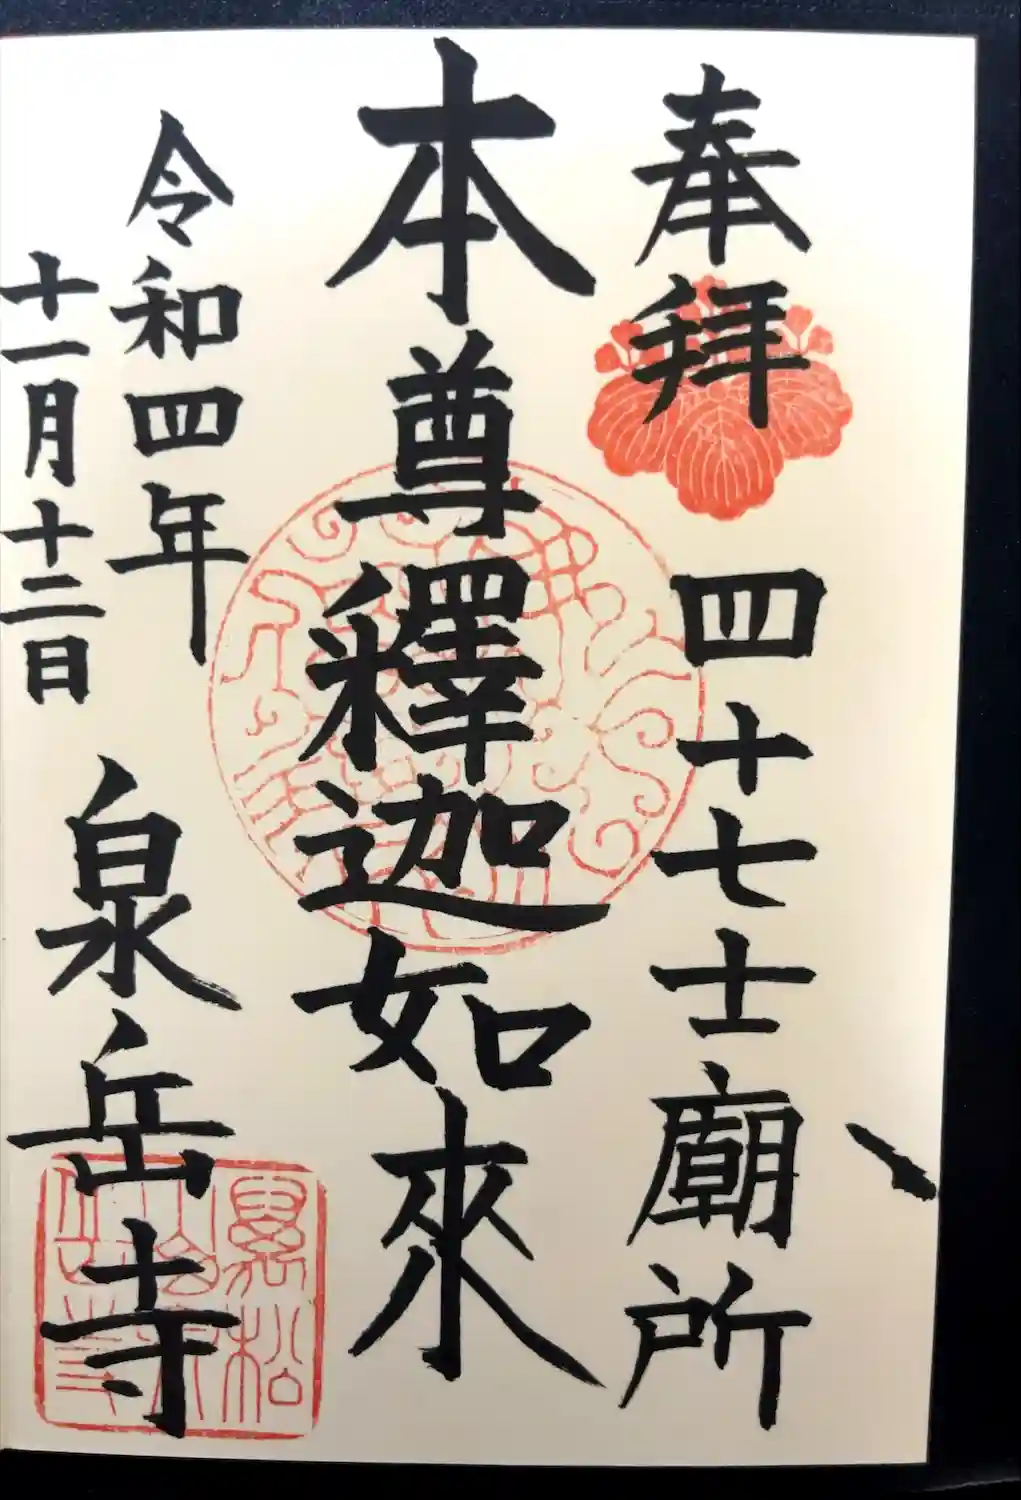 奉拜 四十七士廟所
本尊釋迦如來
令和四年
十一月十二日
泉岳寺